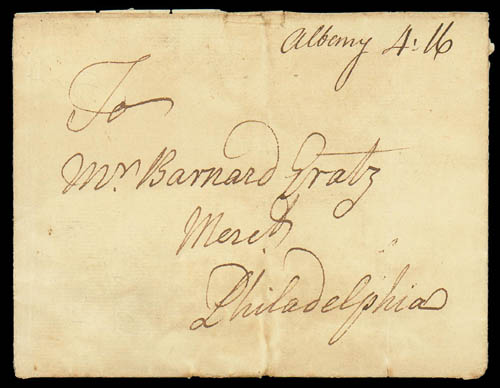 Albany 4:16
To
Mr Barnard Gratz
Mercht
Philadelphia